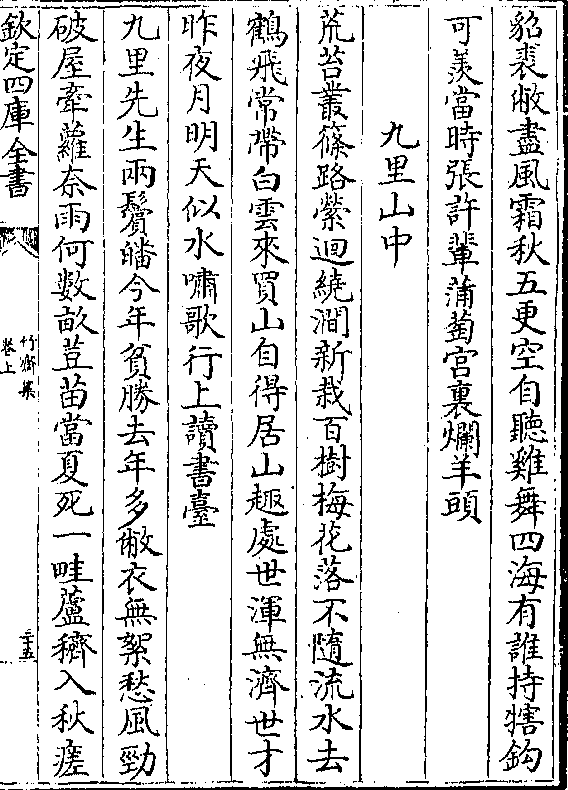 貂裘敝盡風霜秋五更空自聽雞舞四海有誰持犗鈎
可羨當時張許輩蒲萄宫裏爛羊頭
九里山中
荒苔叢篠路縈迴繞澗新栽百樹梅花落不隨流水去
鶴飛常帶白雲來買山自得居山趣處世渾無濟世才
昨夜月明天似水嘯歌行上讀書臺
九里先生兩鬢皤今年貧勝去年多敝衣無絮愁風勁
破屋牽蘿奈雨何數畝荳苗當夏死一畦蘆穄入秋瘥
欽定四庫全書
竹齋集
卷上
三十五